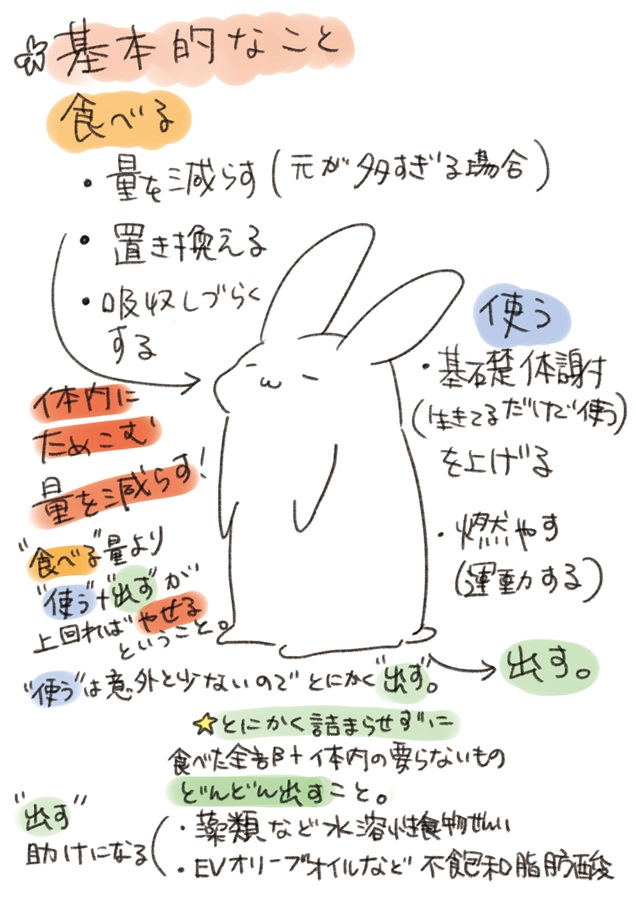 ☆基本的なこと
食べる
・量を減らす(元が多すぎる場合)
・置き換える
・吸収しづらく
する
使う
・基礎体謝付
(生きてるだけで使う)
を上げる
・燃やす
(運動する)
体内に
ためこむ
量を減らす!
"食べる"量より
"使う"+"出す"が
上回れば"やせる
ということ。
出す。
"使う"は意外と少ないので とにかく"出す"。
☆とにかく詰まらせずに
食べた全部+体内の要らないもの
どんどん出すこと。
"出す"
助けになる
・藻類など水溶性食物せんい
・EVオリーブオイルなど 不飽和脂肪酸